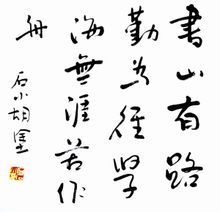 書山有路
勤为徑学
海無涯苦作
舟
石小胡塗